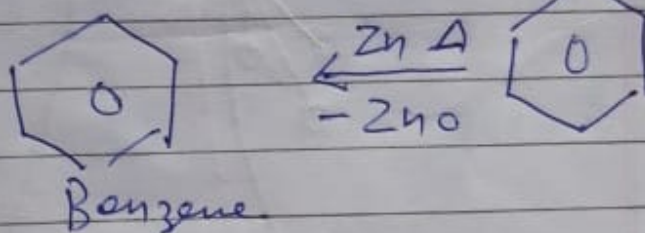 Zn Δ
- Zno
Benzene